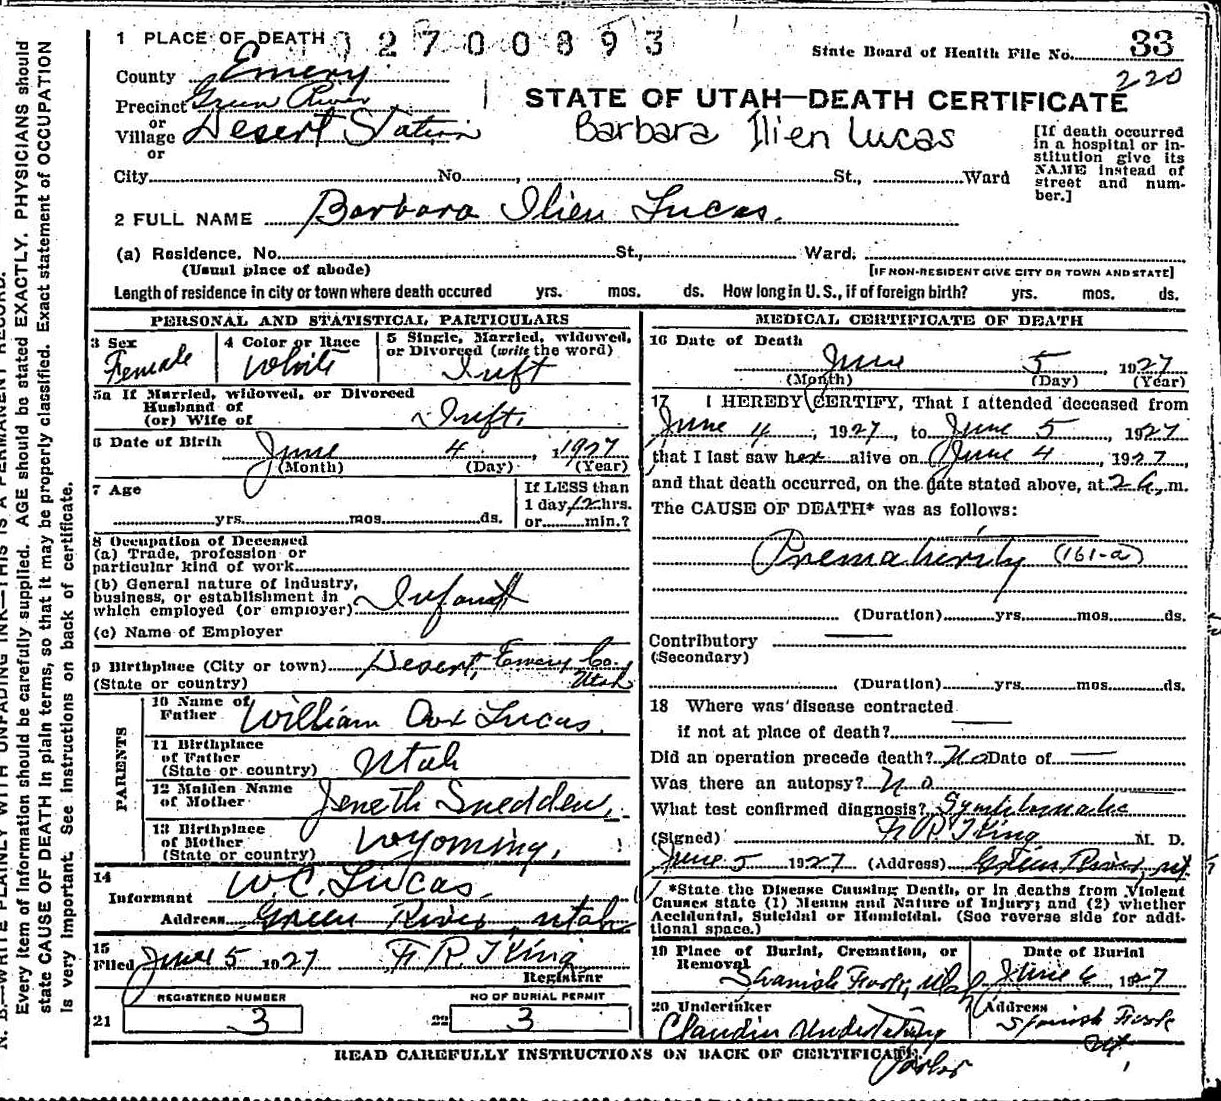 1 PLACE OF DEATH 02700893
State Board of Health File No. 33
220
County Emery
Precinct Green River
or
Village Desert Station
or
STATE OF UTAH—DEATH CERTIFICATE
Barbara Ilien Lucas
[If death occurred in a hospital or in-
stitution give its
NAME instead of
street and num-
ber.]
City No. , St., Ward
2 FULL NAME Barbara Ilien Lucas.
(a) Residence. No. St., Ward.
(Usual place of abode) [IF NON-RESIDENT GIVE CITY OR TOWN AND STATE]
Length of residence in city or town where death occured yrs. mos. ds. How long in U. S., if of foreign birth? yrs. mos. ds.
PERSONAL AND STATISTICAL PARTICULARS
3 Sex Female
4 Color or Race White
5 Single, Married, widowed,
or Divorced (write the word)
Inft
5a If Married, widowed, or Divorced
Husband of
(or) Wife of Inft.
6 Date of Birth June 4, 1927
(Month) (Day) (Year)
7 Age
yrs. mos. ds.
If LESS than
1 day 12 hrs.
or min.?
8 Occupation of Deceased
(a) Trade, profession or
particular kind of work
(b) General nature of industry,
business, or establishment in
which employed (or employer) Infant
(c) Name of Employer
9 Birthplace (City or town) Desert, Emery Co.
(State or country) Utah
PARENTS
10 Name of
Father William Lucas.
11 Birthplace
of Father
(State or country) Utah
12 Maiden Name
of Mother Jeneth Snedden,
13 Birthplace
of Mother
(State or country) Wyoming,
14
Informant W C. Lucas.
Address Green River, Utah
15
Filed June 5 1927 F R King
Registrar
REGISTERED NUMBER
21 3
NO OF BURIAL PERMIT
22 3
MEDICAL CERTIFICATE OF DEATH
16 Date of Death
June 5, 1927
(Month) (Day) (Year)
17 I HEREBY CERTIFY, That I attended deceased from
June 4, 1927, to June 5, 1927
that I last saw her alive on June 4, 1927,
and that death occurred, on the date stated above, at 2 a.m.
The CAUSE OF DEATH* was as follows:
Prematurity (161-a)
(Duration) yrs. mos. ds.
Contributory
(Secondary)
(Duration) yrs. mos. ds.
18 Where was disease contracted
if not at place of death?
Did an operation precede death? No Date of —
Was there an autopsy? No
What test confirmed diagnosis? Symptomatic
(Signed) F R King M. D.
June 5 1927 (Address) Green River, Ut
*State the Disease Causing Death, or in deaths from Violent
Causes state (1) Means and Nature of Injury; and (2) whether
Accidental, Suicidal or Homicidal. (See reverse side for addi-
tional space.)
19 Place of Burial, Cremation, or
Removal
Spanish Fork, Utah
Date of Burial
June 6, 1927
20 Undertaker
Claudin Undertaking
Parlor
Address
Spanish Fork
Ut.
READ CAREFULLY INSTRUCTIONS ON BACK OF CERTIFICATE.
N. B.—WRITE PLAINLY WITH UNFADING INK—THIS IS A PERMANENT RECORD.
Every item of information should be carefully supplied. AGE should be stated EXACTLY. PHYSICIANS should
state CAUSE OF DEATH in plain terms, so that it may be properly classified. Exact statement of OCCUPATION
is very important. See instructions on back of certificate.